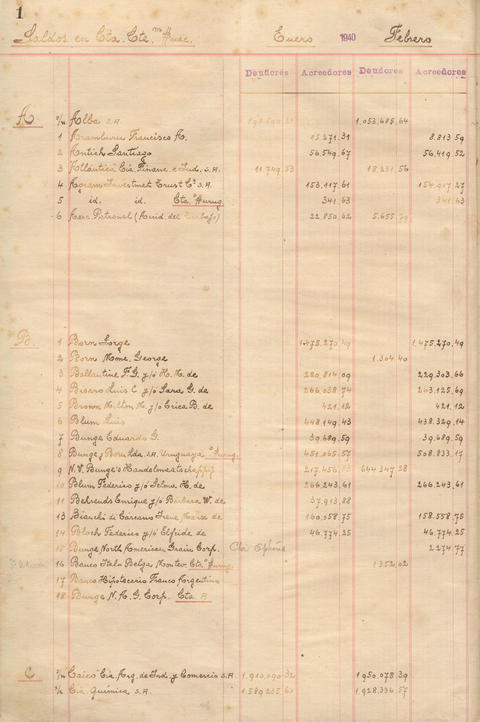 1
Saldos en Cta. Cte. Enero 1940 Febrero
Deudores Acreedores Deudores Acreedores
A Alba S.A. 1.053.685,64
1 Aramburu Francisco A. 15.271,31 8.813,59
2 Antich Santiago 56.549,67 56.419,52
3 Atlantica Cía. Financ. e Ind. S.A. 11.749,53 18.231,56
4 Investment Trust Co. S.A. 153.117,61 154.917,27
5 id. id. Cta. 341,63 341,63
6 Asoc. Patronal (Accid. del Trabajo) 22.850,62 5.655
B. 1 Born Jorge 1.475.270,49 1.475.270,49
2 Born Mme. George 1.304,40
3 Ballantine F.G. y/ó H.M. de 220.814,09 229.303,66
4 Luis C. y/ó Sara G. de 266.038,74 203.125,69
5 Brown Milton M. y/ó Erica B. de 421,12 421,12
6 Blum Luis 448.149,43 438.329,14
7 Bunge Eduardo G. 39.689,59 39.689,59
8 Bunge y Born Ltda. S.A. Uruguaya 451.865,57 508.833,17
9 N.V. Bunge's Handelmaatschappij 217.456 644.347,28
10 Blum Federico y/ó Selma H. de 266.243,61 266.243,61
11 Behrends Enrique y/ó Bárbara W. de 37.913,88
13 Bianchi di Cárcano Irene de 160.058,75 158.558,75
14 Bloch Federico y/ó Elfride de 46.774,25 46.774,25
15 Bunge North American Grain Corp. 2274,77
16 Banco Italo Belga Montev. Cta. 1352,02
17 Banco Hipotecario Franco Argentino
18 Bunge N.A.G. Corp. Cta. A
C Caico Cía Arg. de Ind. y Comercio S.A. 1.910.090,32 1.950.078,39
Cía. Química S.A. 1.589.235 1.928.336,57